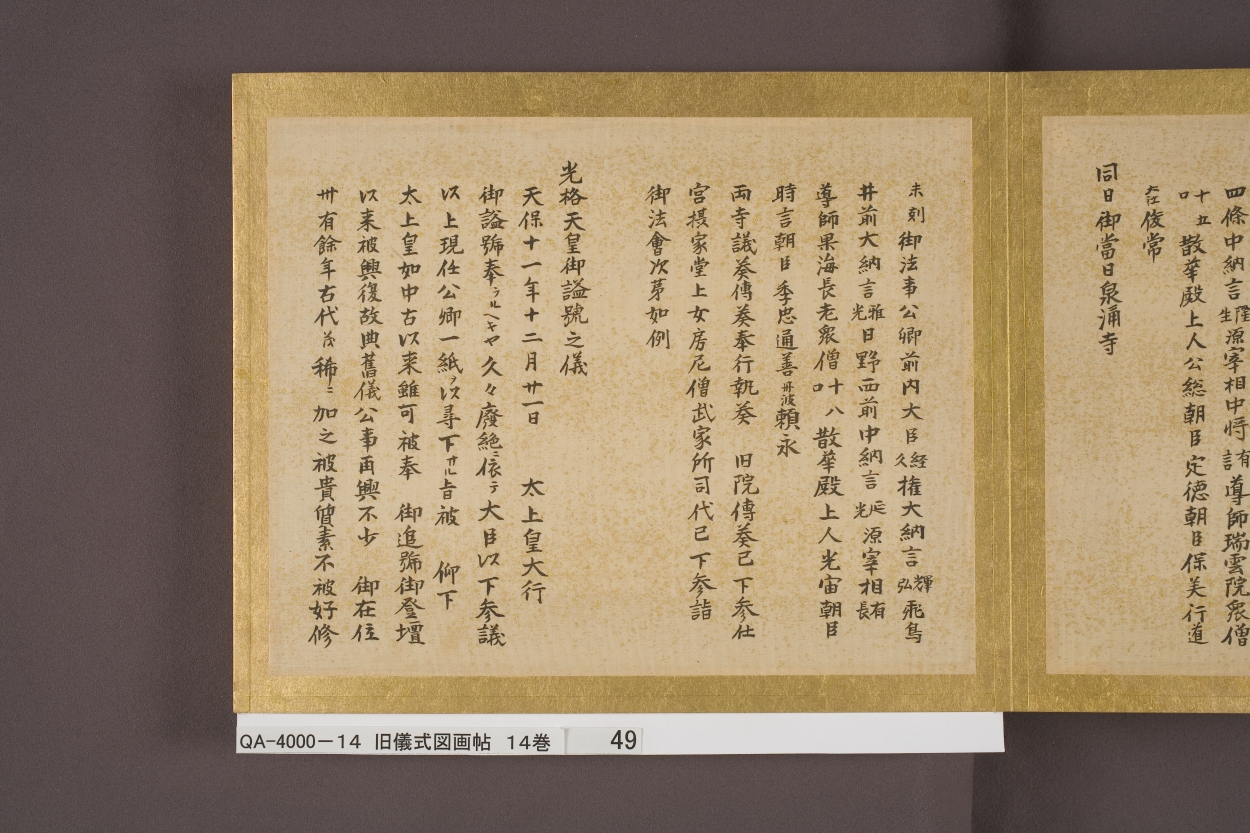 四條中納言隆生源宰相中将有言導師瑞雲院衆僧
十五口散華殿上人公総朝臣定徳朝臣保美行道
俊常
同日御當日泉涌寺
未刻御法事公卿前内大臣経久権大納言輝弘飛鳥
井前大納言雅光日野西前中納言延光源宰相有長
導師果海長老衆僧十八口散華殿上人光宙朝臣
時言朝臣季忠通善丹波頼永
両寺議奏傳奏奉行執奏　旧院傳奏已下参仕
宮摂家堂上女房尼僧武家所司代已下参詣
御法會次苐如例
光格天皇御謚號之儀
天保十一年十二月廿一日　太上皇大行
御謚號奉ラルヘキヤ久々廢絶ニ依テ大臣以下参議
以上現任公卿一紙ヲ以尋下サル旨被　仰下
太上皇如中古以来雖可被奉　御追號御登壇
以来被興復故典舊儀公事再興不少　御在位
卅有餘年古代茂稀ニ加之被貴質素不被好修
QA-4000-14 旧儀式図画帖 14巻 49